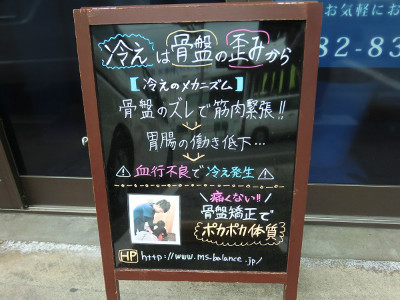 お気軽にお
82-83
冷えは骨盤の歪みから
【冷えのメカニズム】
骨盤のズレで筋肉緊張!!
胃腸の働き低下…
⚠血行不良で冷え発生⚠
\痛くない!!/
骨盤矯正で
ポカポカ体質
HP http://www.ms-balance.jp/